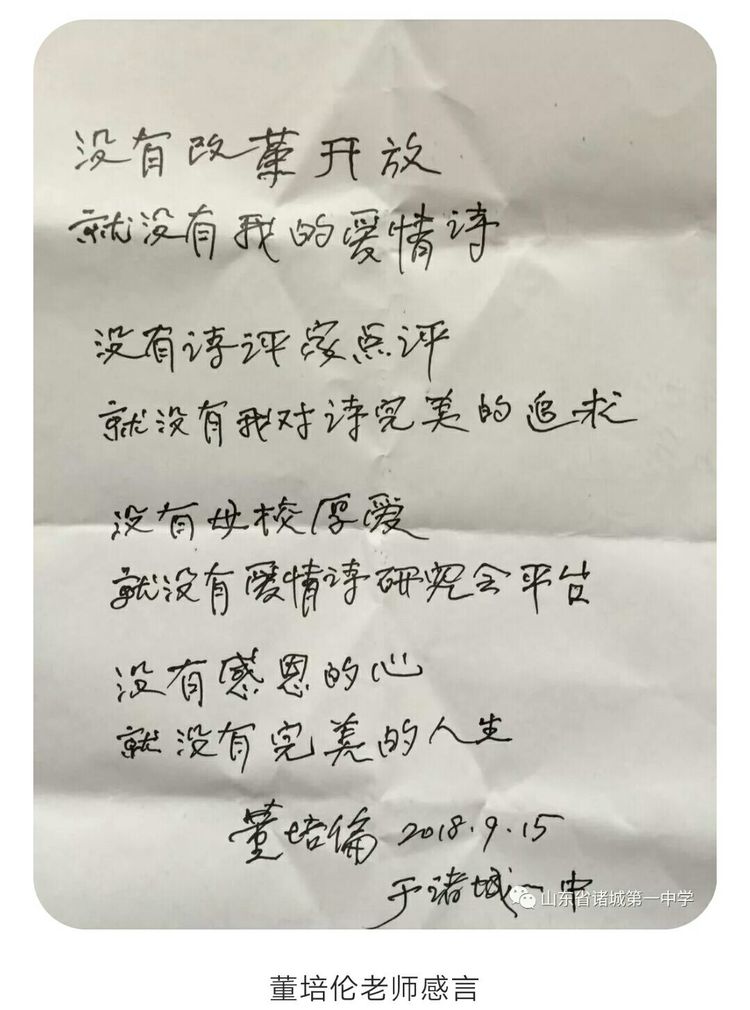 没有改革开放
就没有我的爱情诗
没有诗评家点评
就没有我对诗完美的追求
没有母校厚爱
就没有爱情诗研究会平台
没有感恩的心
就没有完美的人生
董培倫 2018.9.15
于诸城一中
山东省诸城第一中学
董培伦老师感言